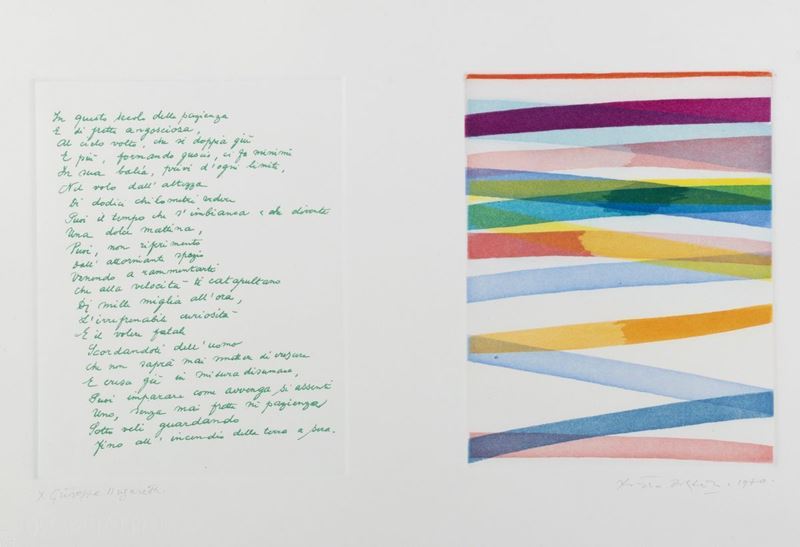 In questo secolo della pazienza
E di fretta angosciosa,
Al cielo volto, che si doppia giù
E più, formando guscio, ci fa minimi
In sua balia, privi d'ogni limite,
Nel volo dall'altezza
Di dodici chilometri vedere
Puoi il tempo che s'imbianca e che diventa
Una dolce mattina,
Puoi, non riferimento
Dall'attorniante spazio
Venendo a rammentarti
Che alla velocità ti catapultano
Di mille miglia all'ora,
L'irrefrenabile curiosità
E il volere fatale
Scordandoti dell'uomo
Che non saprà mai smettere di crescere
E cresce già in misura disumana,
Puoi imparare come avvenga si assenti
Uno, senza mai fretta né pazienza
Sotto veli guardando
Fino all'incendio della terra a sera.
X Giuseppe Ungaretti.
1970.